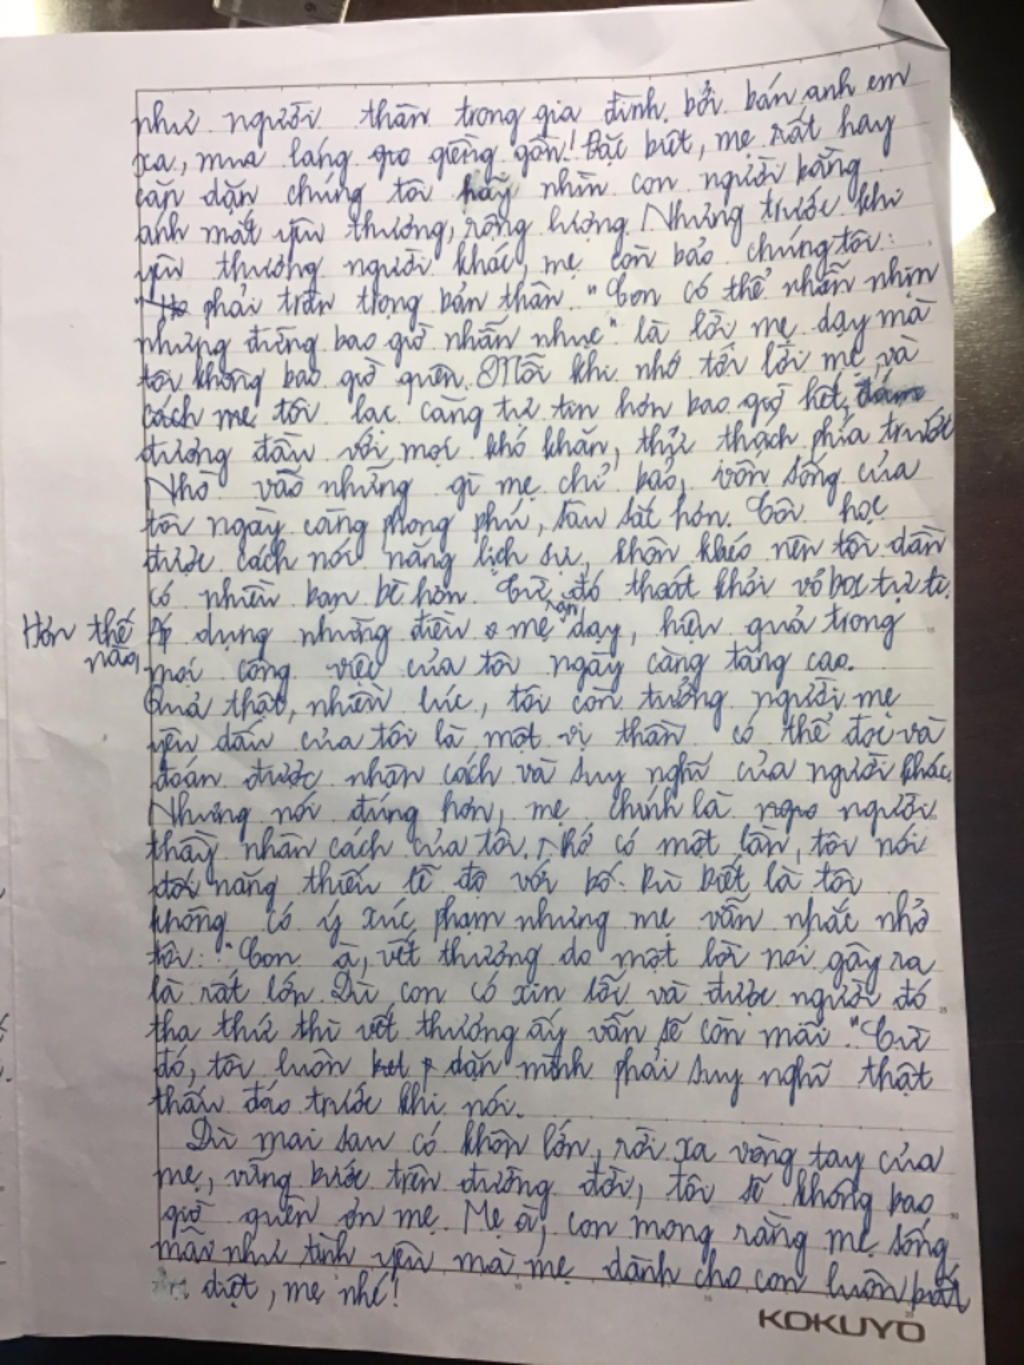 như người thân trong gia đình, bởi bán anh em
xa, mua láng giềng gần! Đặc biệt, mẹ rất hay
căn dặn chúng tôi hãy nhìn con người bằng
ánh mắt yêu thương, rộng lượng. Nhưng trước khi
yêu thương người khác, mẹ còn bảo chúng tôi:
phải trân trọng bản thân. "Con có thể nhẫn nhịn
nhưng đừng bao giờ nhẫn nhục" là lời mẹ dạy mà
tôi không bao giờ quên. Mỗi khi nhớ tới lời mẹ, và
cách mẹ tôi lại càng tự tin hơn bao giờ hết,
đương đầu với mọi khó khăn, thử thách phía trước
Nhờ vào những gì mẹ chỉ bảo, vốn sống của
tôi ngày càng phong phú, sâu sắc hơn. Tôi học
được cách nói năng lịch sự, khôn khéo nên tôi dần
có nhiều bạn bè hơn. Từ đó thoát khỏi vỏ bọc tự ti.
Hơn thế nữa, Áp dụng những điều mẹ răn dạy, hiệu quả trong
mọi công việc của tôi ngày càng tăng cao.
Quả thật, nhiều lúc, tôi còn tưởng người mẹ
yêu dấu của tôi là một vị thần có thể đọc và
đoán được nhân cách và suy nghĩ của người khác.
Nhưng nói đúng hơn, mẹ chính là người
thầy nhân cách của tôi. Nhớ có một lần, tôi nói
năng thiếu lễ độ với bố. Dù biết là tôi
không có ý xúc phạm nhưng mẹ vẫn nhắc nhở
tôi: "Con à, vết thương do một lời nói gây ra
là rất lớn. Dù con có xin lỗi và được người đó
tha thứ thì vết thương ấy vẫn sẽ còn mãi." Từ
đó, tôi luôn dặn mình phải suy nghĩ thật
thấu đáo trước khi nói.
Dù mai sau có khôn lớn, rời xa vòng tay của
mẹ, vững bước trên đường đời, tôi sẽ không bao
giờ quên ơn mẹ. Mẹ à, con mong rằng mẹ sống
mãi như tình yêu mà mẹ dành cho con luôn bất
diệt, mẹ nhé!
KOKUYO